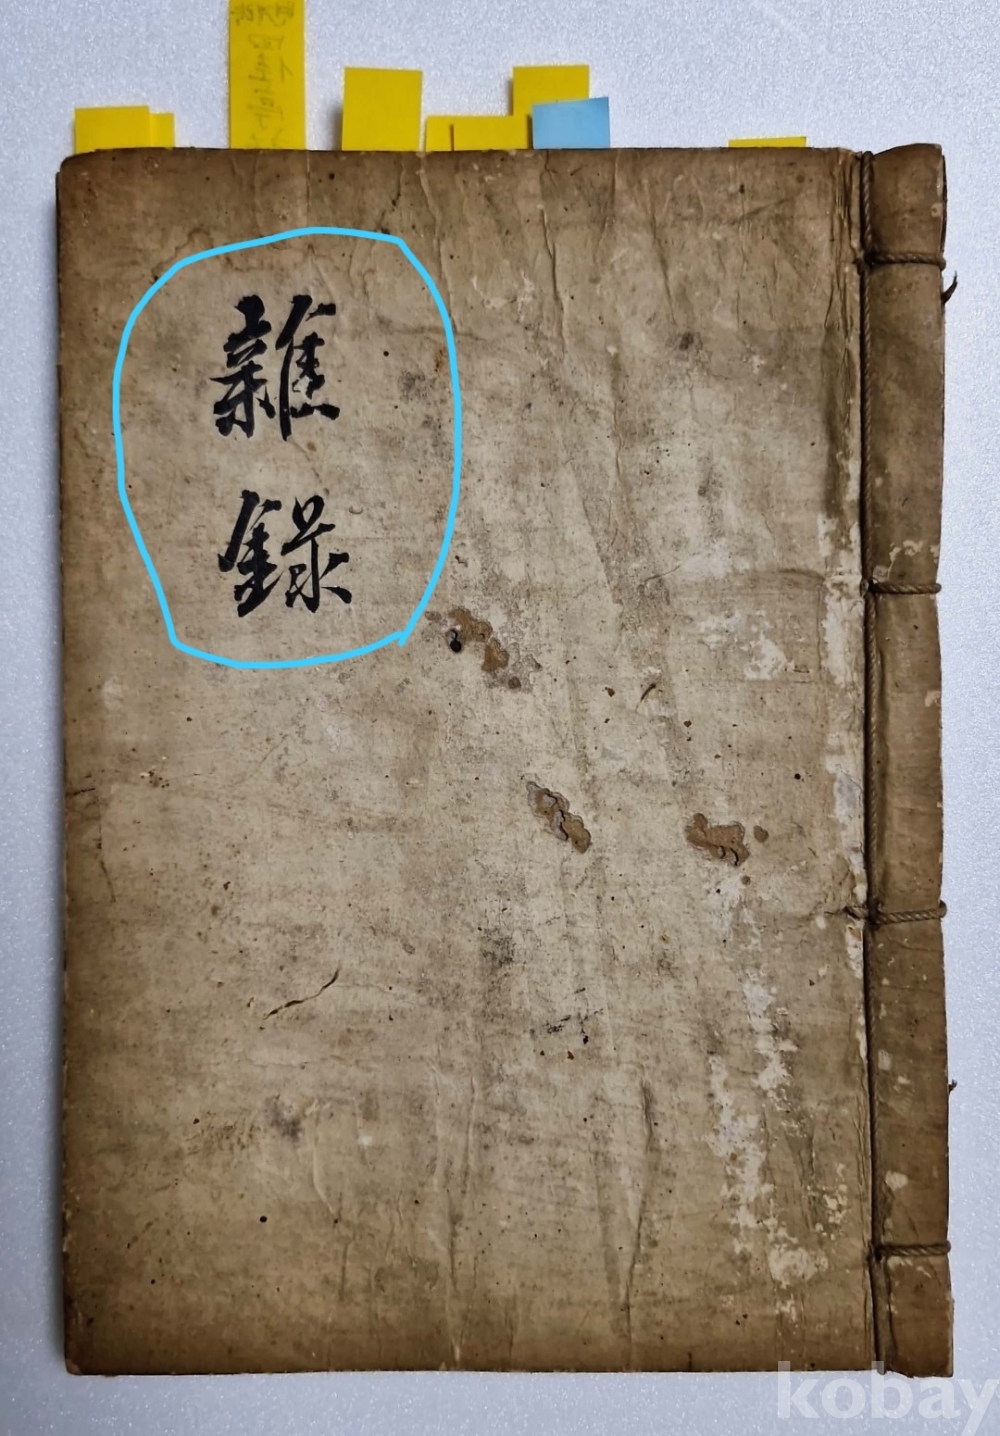 雜
錄
kobay